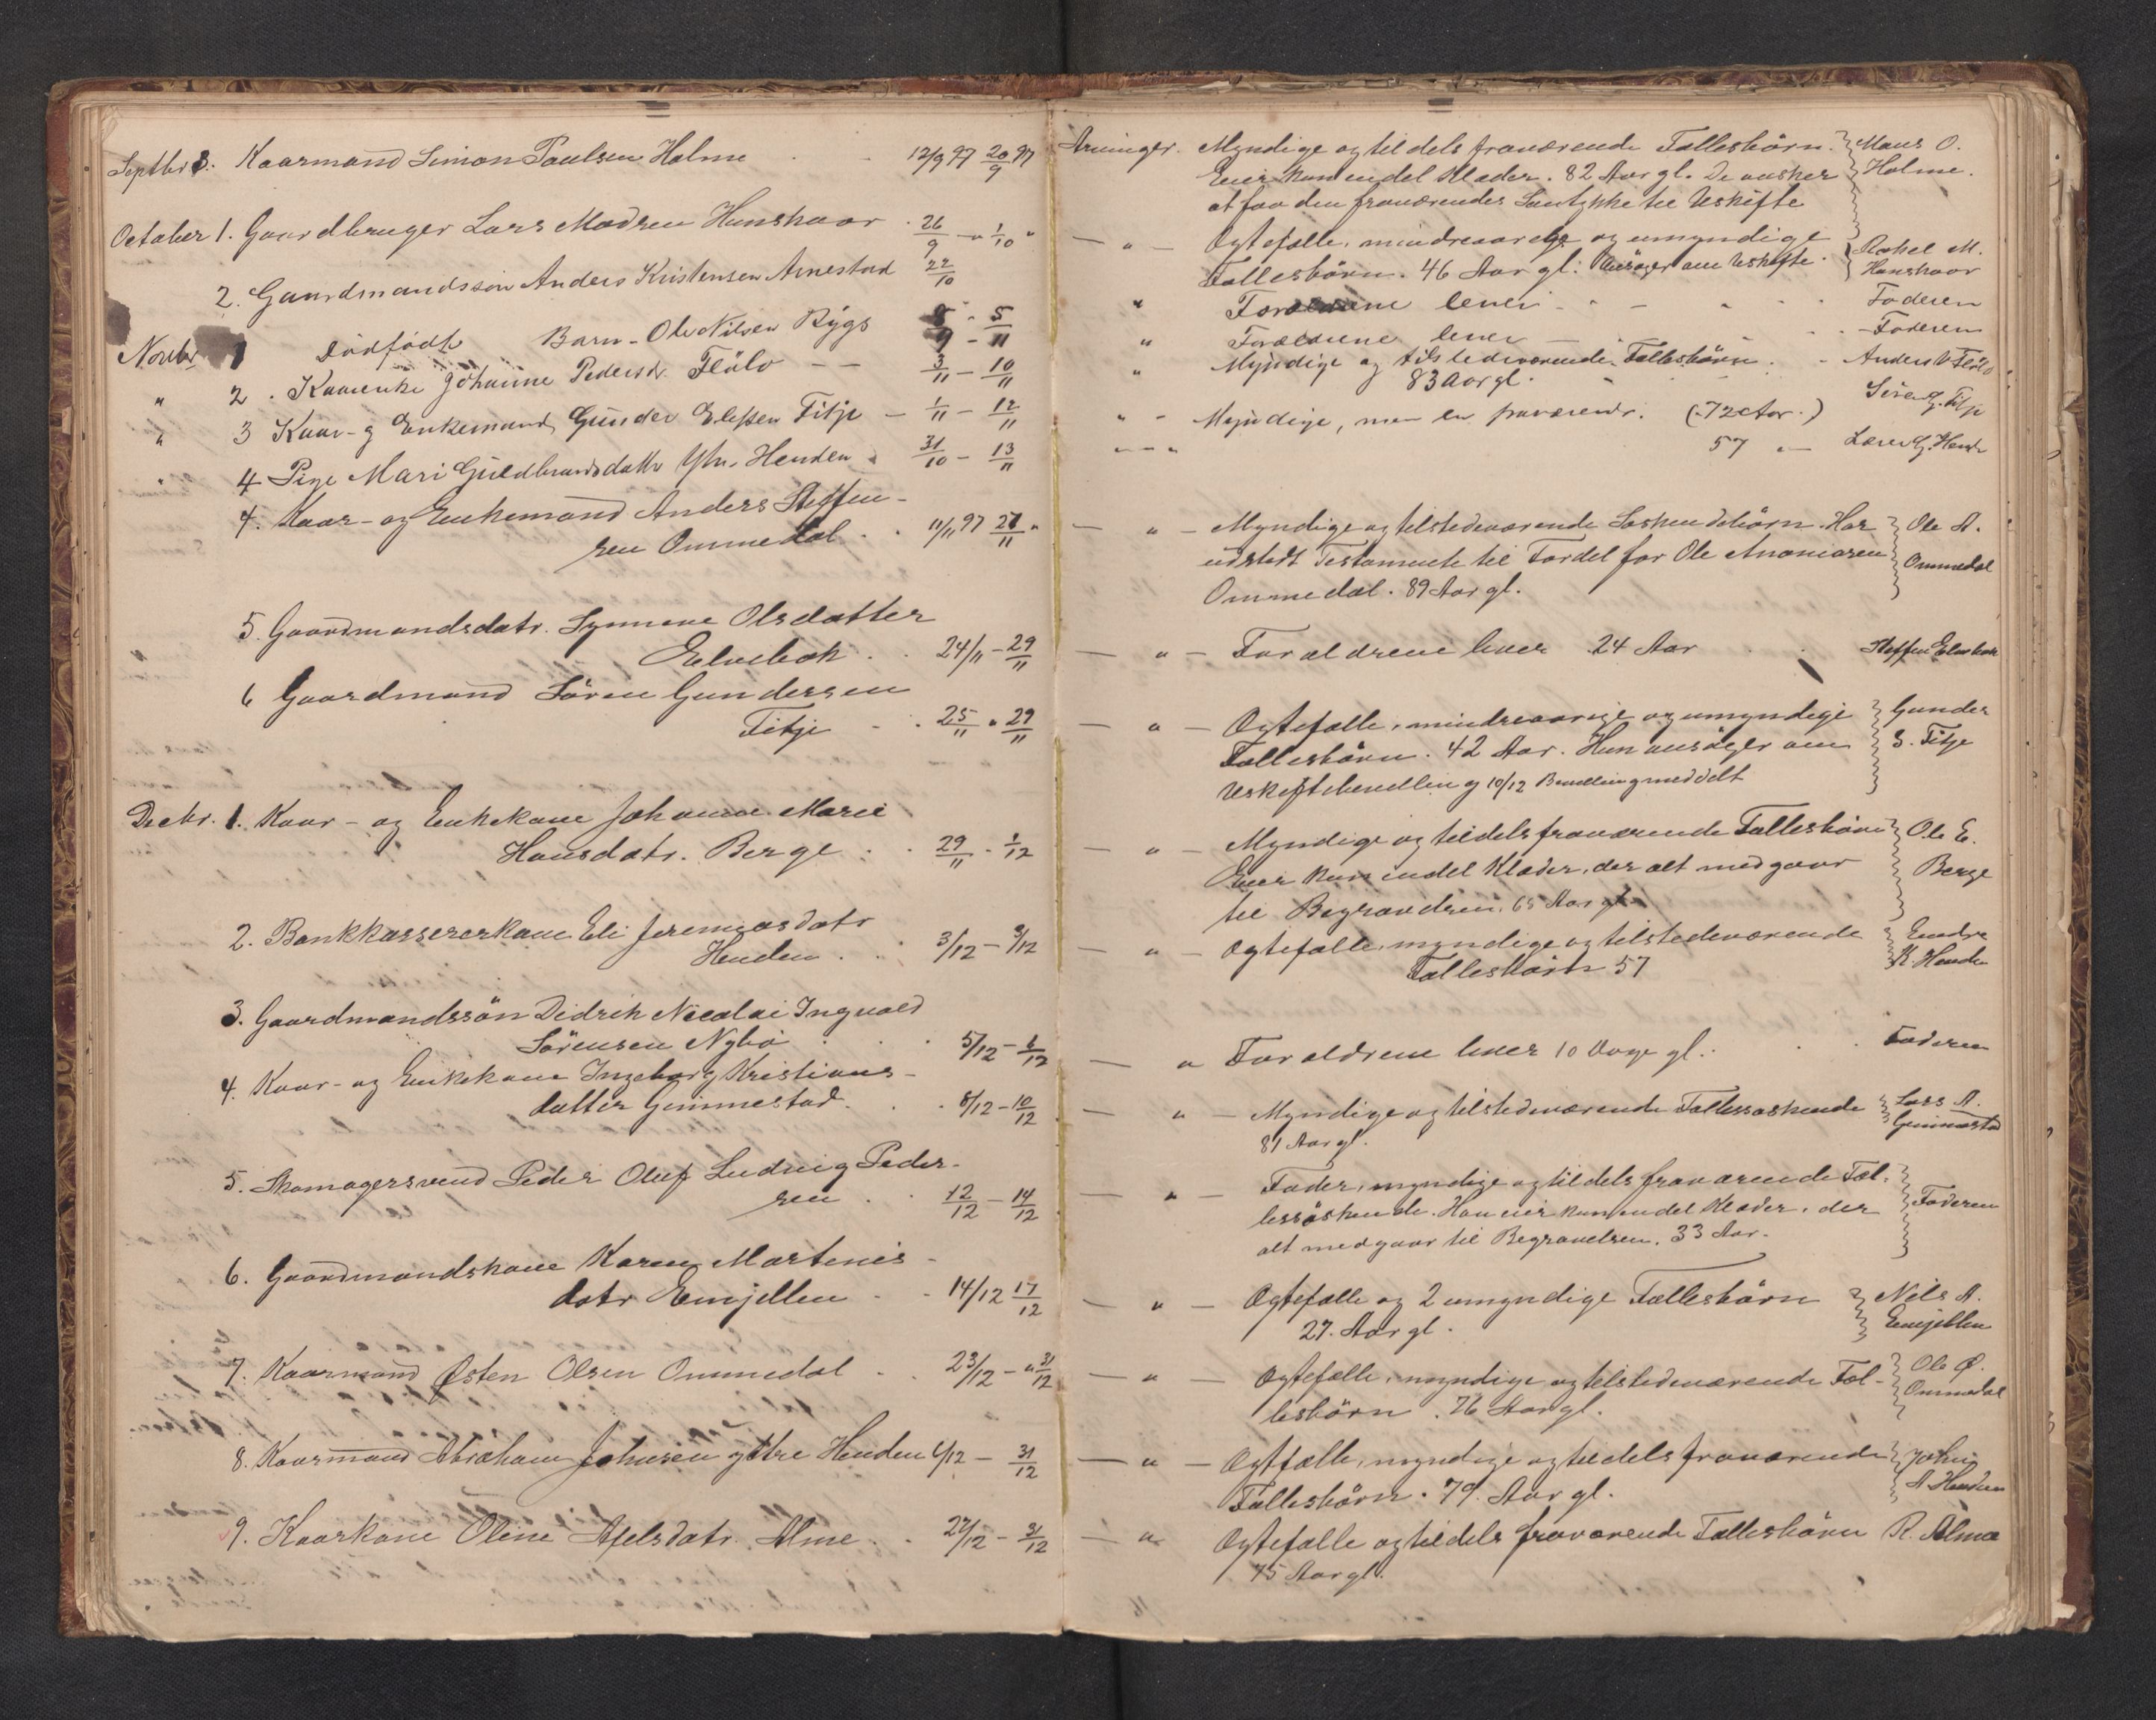 Septbr 3. Kaarmand Simon Paulsen Holme 12/9 97 20/9 97
October 1. Gaardbruger Lars Madsen Henshaar 26/9 - " 1/10 "
2. Gaardmandssøn Anders Kristensen Arnestad 22/10
Novbr 1 Dødfødt Barn - Ole Nilsen Rygs 8/9 - 5/11
" 2. Kaarenke Johanne Pedersdr. Flölo - - 3/11 - 10/11
" 3 Kaar- og Enkemand Gunder Elefsen Fitje - 1/11 - 12/11
" 4 Pige Mari Guldbrandsdattr Ytr. Henden 31/10 - 13/11
4. Kaar- og Enkemand Anders Steffen-
sen Ommedal . . 11/11 97 27/11 "
5. Gaardmandsdatr. Synneve Olsdatter
Elvebak . . 24/11 - 29/11
6 Gaardmand Sören Gundersen
Fitje . . 25/11 " 29/11
Decbr. 1. Kaar- og Enkekone Johanne Marie
Hansdatr. Berge . . 29/11 - 1/12
2. Bankkassererkone Eli Jeremiasdatr
Henden . . 3/12 - 9/12
3. Gaardmandssön Didrik Nicolai Ingvald
Sörensen Nybö . . 5/12 - 6/12
4. Kaar- og Enkekone Ingeborg Kristians-
datter Gimmestad . . 8/12 - 10/12
5. Skomagersvend Peder Oluf Ludvig Peder-
sen . . 12/12 - 14/12
6. Gaardmandskone Karen Martinis-
datr Emjellen . . 14/12 17/12
7. Kaarmand Østen Olsen Ommedal . . 23/12 - " 31/12
8. Kaarmand Abraham Johnsen ytre Henden 6/12 - 31/12
9. Kaarkone Oline Axelsdatr. Alme . . 27/12 - 31/12
Arvinger. Myndige og tildels fraværende Fællesbörn. Mons O.
Eier kun endel Klæder. 82 Aar gl. De önsker Holme.
at faa den fraværendes Samtykke til Uskifte
- " - Ægtefælle, mindreaarige og umyndige Rakel M.
Fællesbörn. 46 Aar gl. Ansöger om Uskifte. Henshaar
" Forældrene lever - - Faderen
" Forældrene lever - Faderen
" Myndige og tilstedeværende Fællesbörn. - Anders Flölo
83 Aar gl.
" - Myndige, men en fraværende. (72 Aar.) Sören G. Fitje
" - " 57 " - Lærer G. Henden
- " - Myndige og tilstedeværende Söskendebörn. Har Ole A.
udstedt Testamente til Fordel for Ole Ananiasen Ommedal
Ommedal. 89 Aar gl.
- " - Forældrene lever 24 Aar Steffen Elvebak
- " - Ægtefælle, mindreaarige og umyndige Gunder
Fællesbörn. 42 Aar. Hun ansöger om S. Fitje
Uskiftebevilling 10/12 Bevilling meddelt
- " - Myndige og tildels fraværende Fællesbörn Ole E.
Eier kun endel Klæder, der alt medgaar Berge
til Begravelsen. 65 Aar gl.
- " - Ægtefælle, myndige og tilstedeværende Endre
Fællesbörn 57 K. Henden
- " Forældrene lever 10 Uger gl. . . Faderen
- " - Myndige og tilstedeværende Fællessöskende Lars A.
81 Aar gl. Gimmestad
- " - Fader, myndige og tildels fraværende Fæl-
lessöskende. Han eier kun endel Klæder, der Faderen
alt medgaar til Begravelsen. 33 Aar.
- " - Ægtefælle og 2 umyndige Fællesbörn Nils A.
27. Aar gl. Emjellen
- " - Ægtefælle, myndige og tilstedeværende Fæl- Ole Ø.
lesbörn. 76 Aar gl. Ommedal
- " - Ægtfælle, myndige og tildels fraværende John
Fællesbörn. 79. Aar gl. A. Henden
- " Ægtefælle og tildels fraværende Fællesbörn R. Alme
75 Aar gl.